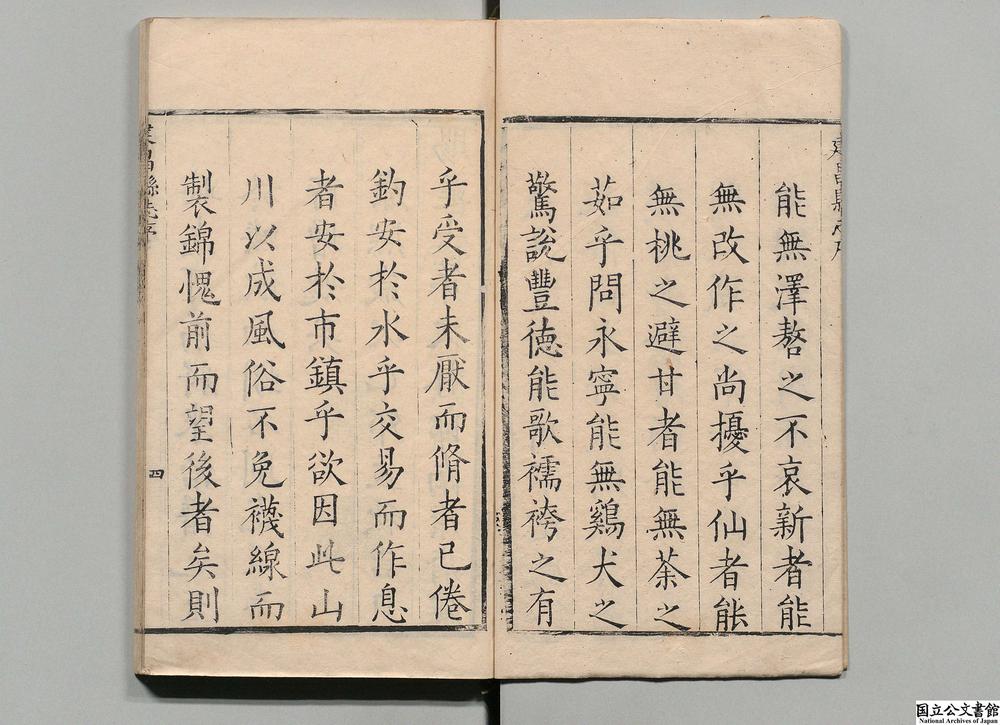 能無澤嗸之不哀新者能
無改作之尚擾乎仙者能
無桃之避甘者能無荼之
茹乎問永寧能無鷄犬之
驚說豐徳能歌襦袴之有
乎受者未厭而脩者已倦
釣安於水乎交易而作息
者安於市鎮乎欲因此山
川以成風俗不免襪線而
製錦愧前而望後者矣則
建昌縣志序
四
国立公文書館
National Archives of Japan